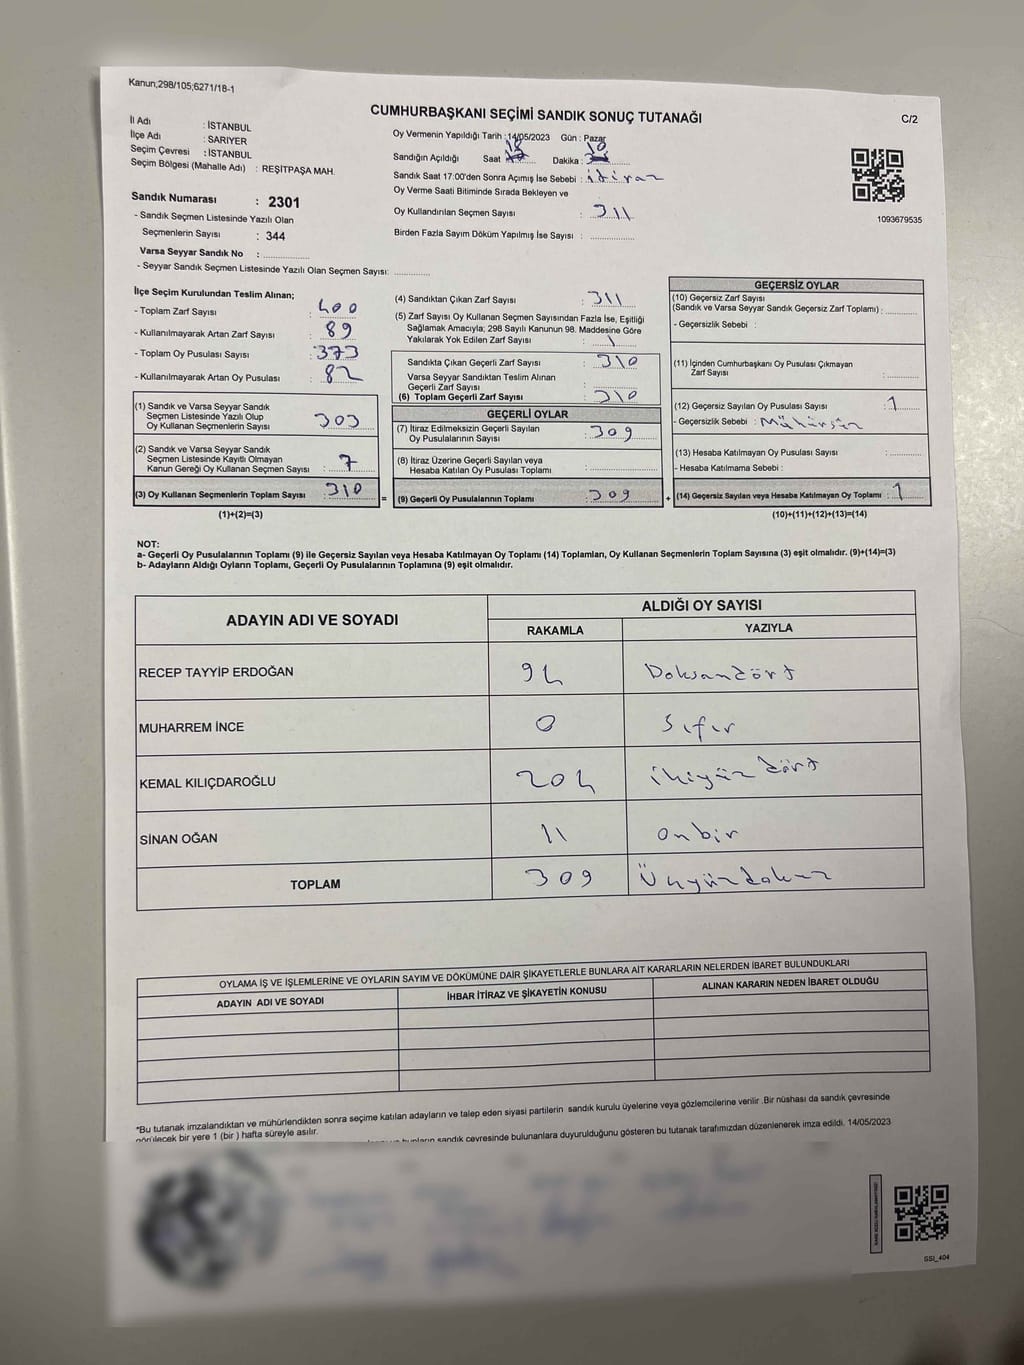 Kanun;298/105;6271/18-1
CUMHURBAŞKANI SEÇİMİ SANDIK SONUÇ TUTANAĞI
C/2
İl Adı : İSTANBUL
İlçe Adı : SARIYER
Seçim Çevresi : İSTANBUL
Seçim Bölgesi (Mahalle Adı) : REŞİTPAŞA MAH.
Oy Vermenin Yapıldığı Tarih : 14/05/2023 Gün : Pazar
Sandığın Açıldığı Saat 18 Dakika : 10
Sandık Saat 17:00'den Sonra Açımış İse Sebebi : itiraz
Oy Verme Saati Bitiminde Sırada Bekleyen ve
Oy Kullandırılan Seçmen Sayısı : 311
Birden Fazla Sayım Döküm Yapılmış İse Sayısı :
1093679535
Sandık Numarası : 2301
- Sandık Seçmen Listesinde Yazılı Olan
Seçmenlerin Sayısı : 344
Varsa Seyyar Sandık No :
- Seyyar Sandık Seçmen Listesinde Yazılı Olan Seçmen Sayısı:
İlçe Seçim Kurulundan Teslim Alınan;
- Toplam Zarf Sayısı : 400
- Kullanılmayarak Artan Zarf Sayısı : 89
- Toplam Oy Pusulası Sayısı : 373
- Kullanılmayarak Artan Oy Pusulası : 82
(1) Sandık ve Varsa Seyyar Sandık
Seçmen Listesinde Yazılı Olup
Oy Kullanan Seçmenlerin Sayısı : 303
(2) Sandık ve Varsa Seyyar Sandık
Seçmen Listesinde Kayıtlı Olmayan
Kanun Gereği Oy Kullanan Seçmen Sayısı : 7
(3) Oy Kullanan Seçmenlerin Toplam Sayısı : 310 =
(1)+(2)=(3)
(4) Sandıktan Çıkan Zarf Sayısı : 311
(5) Zarf Sayısı Oy Kullanan Seçmen Sayısından Fazla İse, Eşitliği
Sağlamak Amacıyla; 298 Sayılı Kanunun 98. Maddesine Göre
Yakılarak Yok Edilen Zarf Sayısı : 1
Sandıkta Çıkan Geçerli Zarf Sayısı : 310
Varsa Seyyar Sandıktan Teslim Alınan
Geçerli Zarf Sayısı :
(6) Toplam Geçerli Zarf Sayısı : 310
GEÇERLİ OYLAR
(7) İtiraz Edilmeksizin Geçerli Sayılan
Oy Pusulalarının Sayısı : 309
(8) İtiraz Üzerine Geçerli Sayılan veya
Hesaba Katılan Oy Pusulası Toplamı :
(9) Geçerli Oy Pusulalarının Toplamı : 309 +
GEÇERSİZ OYLAR
(10) Geçersiz Zarf Sayısı
(Sandık ve Varsa Seyyar Sandık Geçersiz Zarf Toplamı) :
- Geçersizlik Sebebi :
(11) İçinden Cumhurbaşkanı Oy Pusulası Çıkmayan
Zarf Sayısı :
(12) Geçersiz Sayılan Oy Pusulası Sayısı : 1
- Geçersizlik Sebebi : Mühürsüz
(13) Hesaba Katılmayan Oy Pusulası Sayısı :
- Hesaba Katılmama Sebebi :
(14) Geçersiz Sayılan veya Hesaba Katılmayan Oy Toplamı : 1
(10)+(11)+(12)+(13)=(14)
NOT:
a- Geçerli Oy Pusulalarının Toplamı (9) ile Geçersiz Sayılan veya Hesaba Katılmayan Oy Toplamı (14) Toplamları, Oy Kullanan Seçmenlerin Toplam Sayısına (3) eşit olmalıdır. (9)+(14)=(3)
b- Adayların Aldığı Oyların Toplamı, Geçerli Oy Pusulalarının Toplamına (9) eşit olmalıdır.
ADAYIN ADI VE SOYADI
ALDIĞI OY SAYISI
RAKAMLA YAZIYLA
RECEP TAYYİP ERDOĞAN 94 Doksandört
MUHARREM İNCE 0 Sıfır
KEMAL KILIÇDAROĞLU 204 ikiyüz dört
SİNAN OĞAN 11 onbir
TOPLAM 309 Üçyüzdokuz
OYLAMA İŞ VE İŞLEMLERİNE VE OYLARIN SAYIM VE DÖKÜMÜNE DAİR ŞİKAYETLERLE BUNLARA AİT KARARLARIN NELERDEN İBARET BULUNDUKLARI
ADAYIN ADI VE SOYADI İHBAR İTİRAZ VE ŞİKAYETİN KONUSU ALINAN KARARIN NEDEN İBARET OLDUĞU
*Bu tutanak imzalandıktan ve mühürlendikten sonra seçime katılan adayların ve talep eden siyasi partilerin sandık kurulu üyelerine veya gözlemcilerine verilir .Bir nüshası da sandık çevresinde
görülecek bir yere 1 (bir ) hafta süreyle asılır.
sandık çevresinde bulunanlara duyurulduğunu gösteren bu tutanak tarafımızdan düzenlenerek imza edildi. 14/05/2023
GSI_404